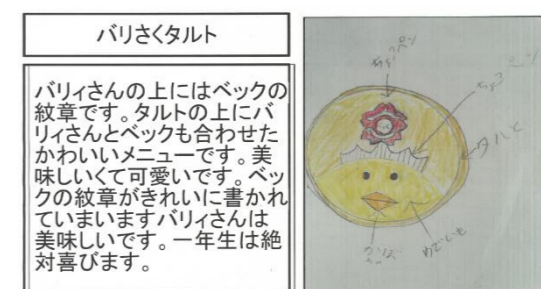 バリさくタルト
バリィさんの上にはベックの
紋章です。タルトの上にバ
リィさんとベックも合わせた
かわいいメニューです。美
味しいくて可愛いです。ベッ
クの紋章がきれいに書かれ
ていまいますバリィさんは
美味しいです。一年生は絶
対喜びます。
ちょこペン
タルト